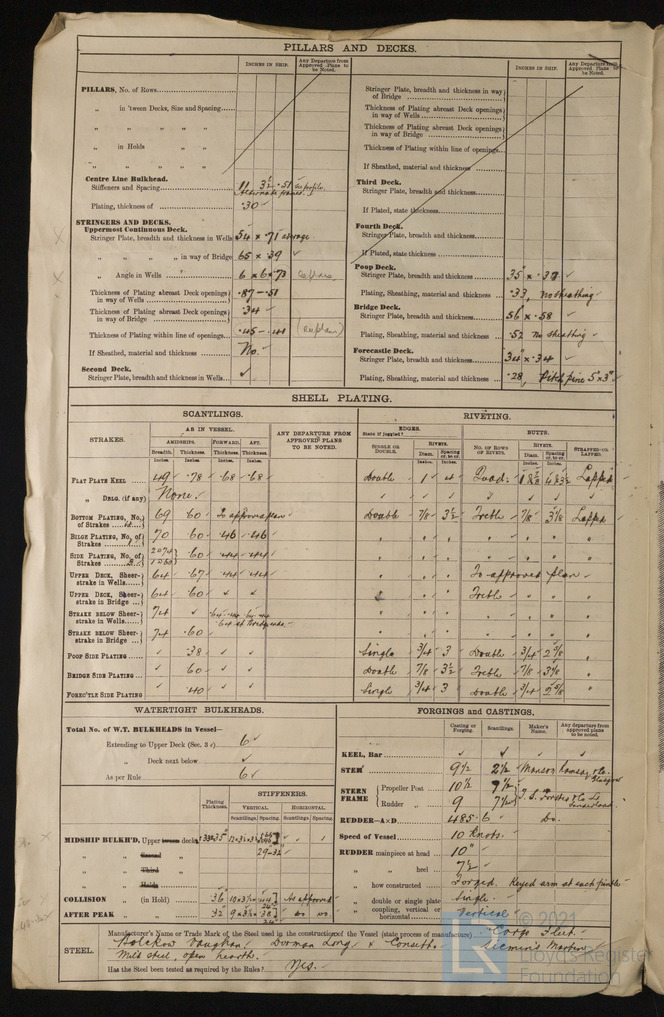 PILLARS AND DECKS.
INCHES IN SHIP.
Any Departure from Approved Plans to be Noted.
PILLARS, No. of Rows
„ in 'tween Decks, Size and Spacing
„ „ „ „
„ in Holds „ „
„ „ „ „
Centre Line Bulkhead.
Stiffeners and Spacing 11 3½ .51 as profile.
Alternate frames.
Plating, thickness of .30 ✓
STRINGERS AND DECKS.
Uppermost Continuous Deck.
Stringer Plate, breadth and thickness in Wells 54 × .71 average.
„ „ „ „ in way of Bridge 65 × .39 ✓
„ Angle in Wells „ 6 × 6 × .73
Thickness of Plating abreast Deck openings in way of Wells .87 – .51
Thickness of Plating abreast Deck openings in way of Bridge .34 ✓
Thickness of Plating within line of openings .45 – .41
If Sheathed, material and thickness No. ✓
Second Deck.
Stringer Plate, breadth and thickness in Wells ✓
INCHES IN SHIP.
Any Departure from Approved Plans to be Noted.
Stringer Plate, breadth and thickness in way of Bridge
Thickness of Plating abreast Deck openings in way of Wells
Thickness of Plating abreast Deck openings in way of Bridge
Thickness of Plating within line of openings
If Sheathed, material and thickness
Third Deck.
Stringer Plate, breadth and thickness
If Plated, state thickness
Fourth Deck.
Stringer Plate, breadth and thickness
If Plated, state thickness
Poop Deck.
Stringer Plate, breadth and thickness 35" × .37 ✓
Plating, Sheathing, material and thickness .33, No sheathing
Bridge Deck.
Stringer Plate, breadth and thickness 56" × .58 ✓
Plating, Sheathing, material and thickness .52 No sheathing ✓
Forecastle Deck.
Stringer Plate, breadth and thickness 34" × .34 ✓
Plating, Sheathing, material and thickness .28, Pitch pine 5" × 3" ✓
SHELL PLATING.
SCANTLINGS.
RIVETING.
STRAKES.
AS IN VESSEL.
AMIDSHIPS. FORWARD. AFT.
Breadth. Thickness. Thickness. Thickness.
Inches. Inches. Inches. Inches.
ANY DEPARTURE FROM APPROVED PLANS TO BE NOTED.
EDGES.
State if joggled?
SINGLE OR DOUBLE.
RIVETS.
Diam. Spacing cr. to cr.
Inches. Inches.
BUTTS.
NO. OF ROWS OF RIVETS.
RIVETS.
Diam. Spacing cr. to cr.
Inches. Inches.
STRAPPED OR LAPPED.
FLAT PLATE KEEL 49 ✓ .78 ✓ .68 ✓ .68 ✓ Double 1 ✓ 4 ✓ Quad: Lapped
„ DBLG. (if any) None ✓
BOTTOM PLATING, No. of Strakes 69 .60 To approved plan Double 7/8 3½ Treble 7/8 3⅛ Lapped
BILGE PLATING, No. of Strakes 70 .60 .46 .46 ✓
SIDE PLATING, No. of Strakes .60 .44 .44 ✓
UPPER DECK, Sheerstrake in Wells 64 ✓ .67 ✓ .44 .44 ✓ To approved plan ✓
UPPER DECK, Sheerstrake in Bridge 64 .60 ✓ ✓ Treble
STRAKE BELOW Sheerstrake in Wells 74 ✓
STRAKE BELOW Sheerstrake in Bridge 74 .60
POOP SIDE PLATING ✓ .38 ✓ ✓ Single 3/4 3 Double 3/4 2⅝
BRIDGE SIDE PLATING ✓ .60 ✓ ✓ Double 7/8 3½ Treble 7/8 3⅛
FORE'C'TLE SIDE PLATING ✓ .40 ✓ ✓ Single 3/4 3 Double 3/4 2⅝
WATERTIGHT BULKHEADS.
Total No. of W.T. BULKHEADS in Vessel—
Extending to Upper Deck (Sec. 3 c) 6 ✓
„ Deck next below ✓
As per Rule 6 ✓
Plating Thickness.
STIFFENERS.
VERTICAL. HORIZONTAL.
Scantlings. Spacing. Scantlings. Spacing.
MIDSHIP BULKH'D, Upper tween decks
29-32
„ „ Second „
„ „ Third „
„ „ Holds „
COLLISION „ (in Hold) .36 As approved
AFTER PEAK „ „ .32 do do.
FORGINGS and CASTINGS.
Casting or Forging. Scantlings. Maker's Name. Any departure from approved plans to be noted.
KEEL, Bar ✓ ✓ ✓ ✓
STEM 9½ 2½
Glasgow
STERN FRAME Propeller Post 10½ 7½
Rudder „ 9 7½ T. S. Forster & Co Ld Sunderland.
RUDDER—A×D 485.6 Do.
Speed of Vessel 10 Knots.
RUDDER mainpiece at head 10"
„ „ heel 7½
„ how constructed Forged. Keyed arm at each pintle
„ double or single plate Single.
„ coupling, vertical or horizontal Vertical
STEEL.
Manufacturer's Name or Trade Mark of the Steel used in the construction of the Vessel (state process of manufacture) Cargo Fleet.
Bolckow Vaughan Dorman Long & Consett. Siemens Martin
Mild steel, open hearth.
Has the Steel been tested as required by the Rules? Yes.
© 2021
Lloyd's Register
Foundation
LR